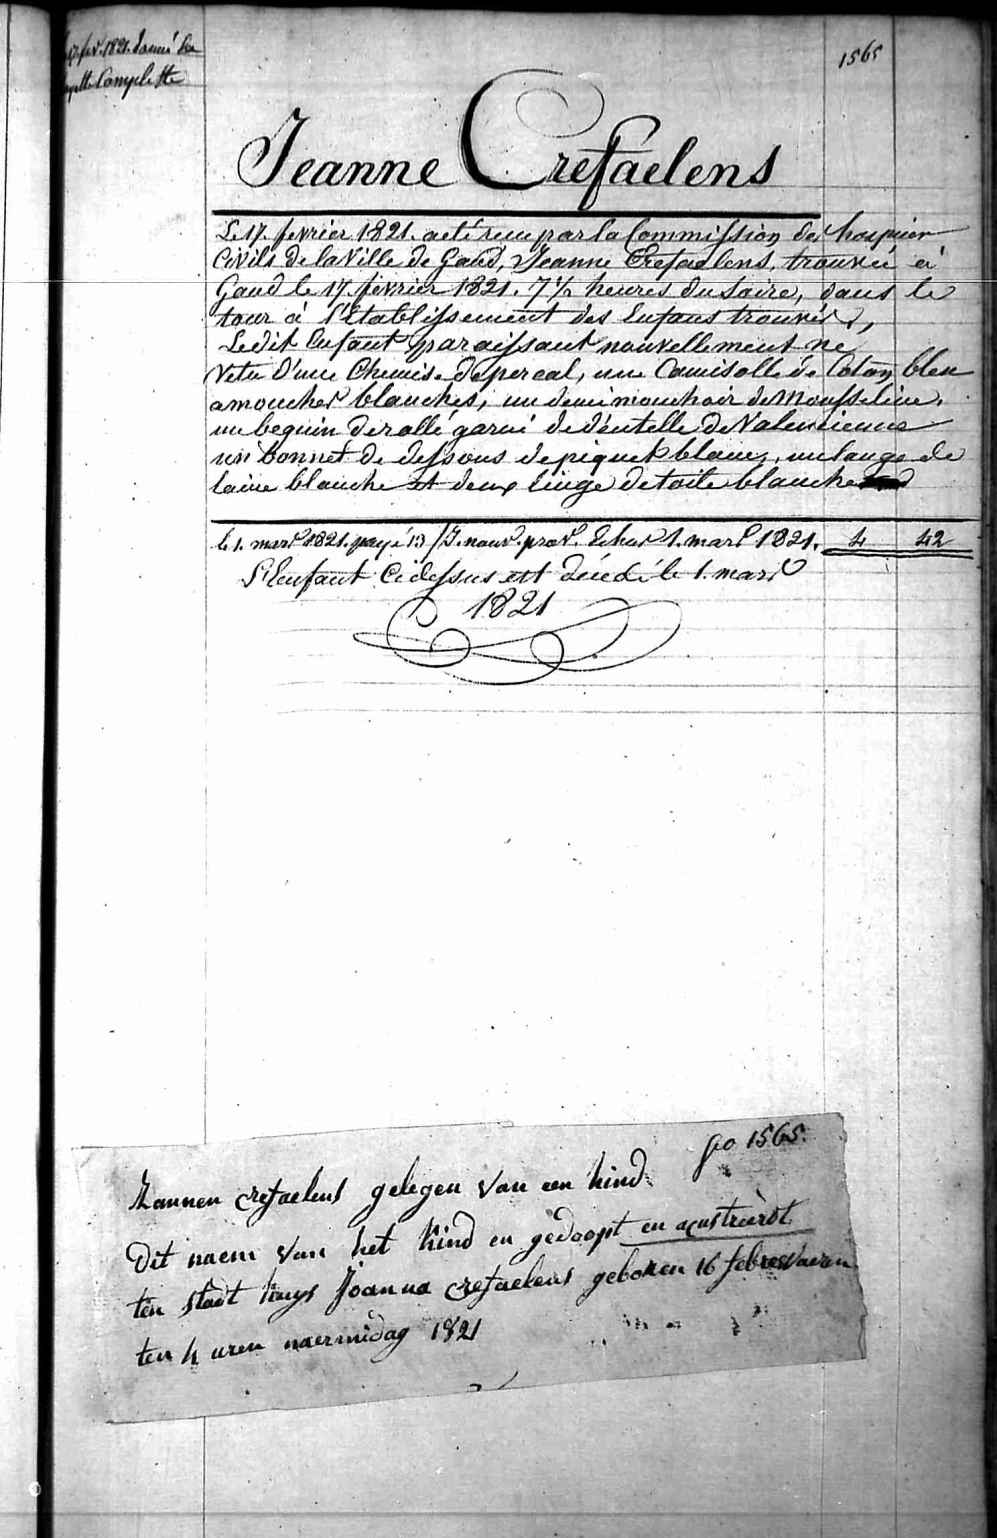 17 fevr. 1821. donné la
Complette
1565
Jeanne Crefaelens
Le 17. fevrier 1821. a eté recu par la Commission des hospices
Civils de la Ville de Gand, Jeanne Crefaelens, trouvée à
Gand le 17. fevrier 1821. 7½ heures du Soire, dans le
tour à l'Etablissement des Enfans trouvés,
Ledit Enfant paraissant nouvellement né
Vetu d'une Chemise de percal, une Camisolle de Coton bleu
a mouches blanches, un demi mouchoir de Mousseline,
un beguin de rolle garni de dentelle de Valencienne
un bonnet de dessous de piquet blanc, un lange de
laine blanche et deux linge de toile blanche
le 1. mars 1821. payé 13 / J. nouv. prov. Echus 1. mars 1821. 4 42
L'Enfant Cidessus est décédé le 1. mars
1821
fo 1565.
Zannen crefaelens gelegen van een kind
dit naem van het kind en gedoopt en
ten stadt huys Joanna crefaelens geboren 16 febrewaren
ten 4 uren naermidag 1821